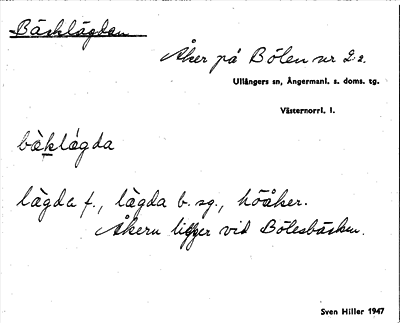 Bäcklägdan
Åker på Bölen nr 2:2.
Ullångers sn, Ångermanl. s. doms. tg.
Västernorrl. l.
bäklägda
lägda f., lägda b. sg., höåker.
Åkern ligger vid Bölesbäcken.
Sven Hiller 1947